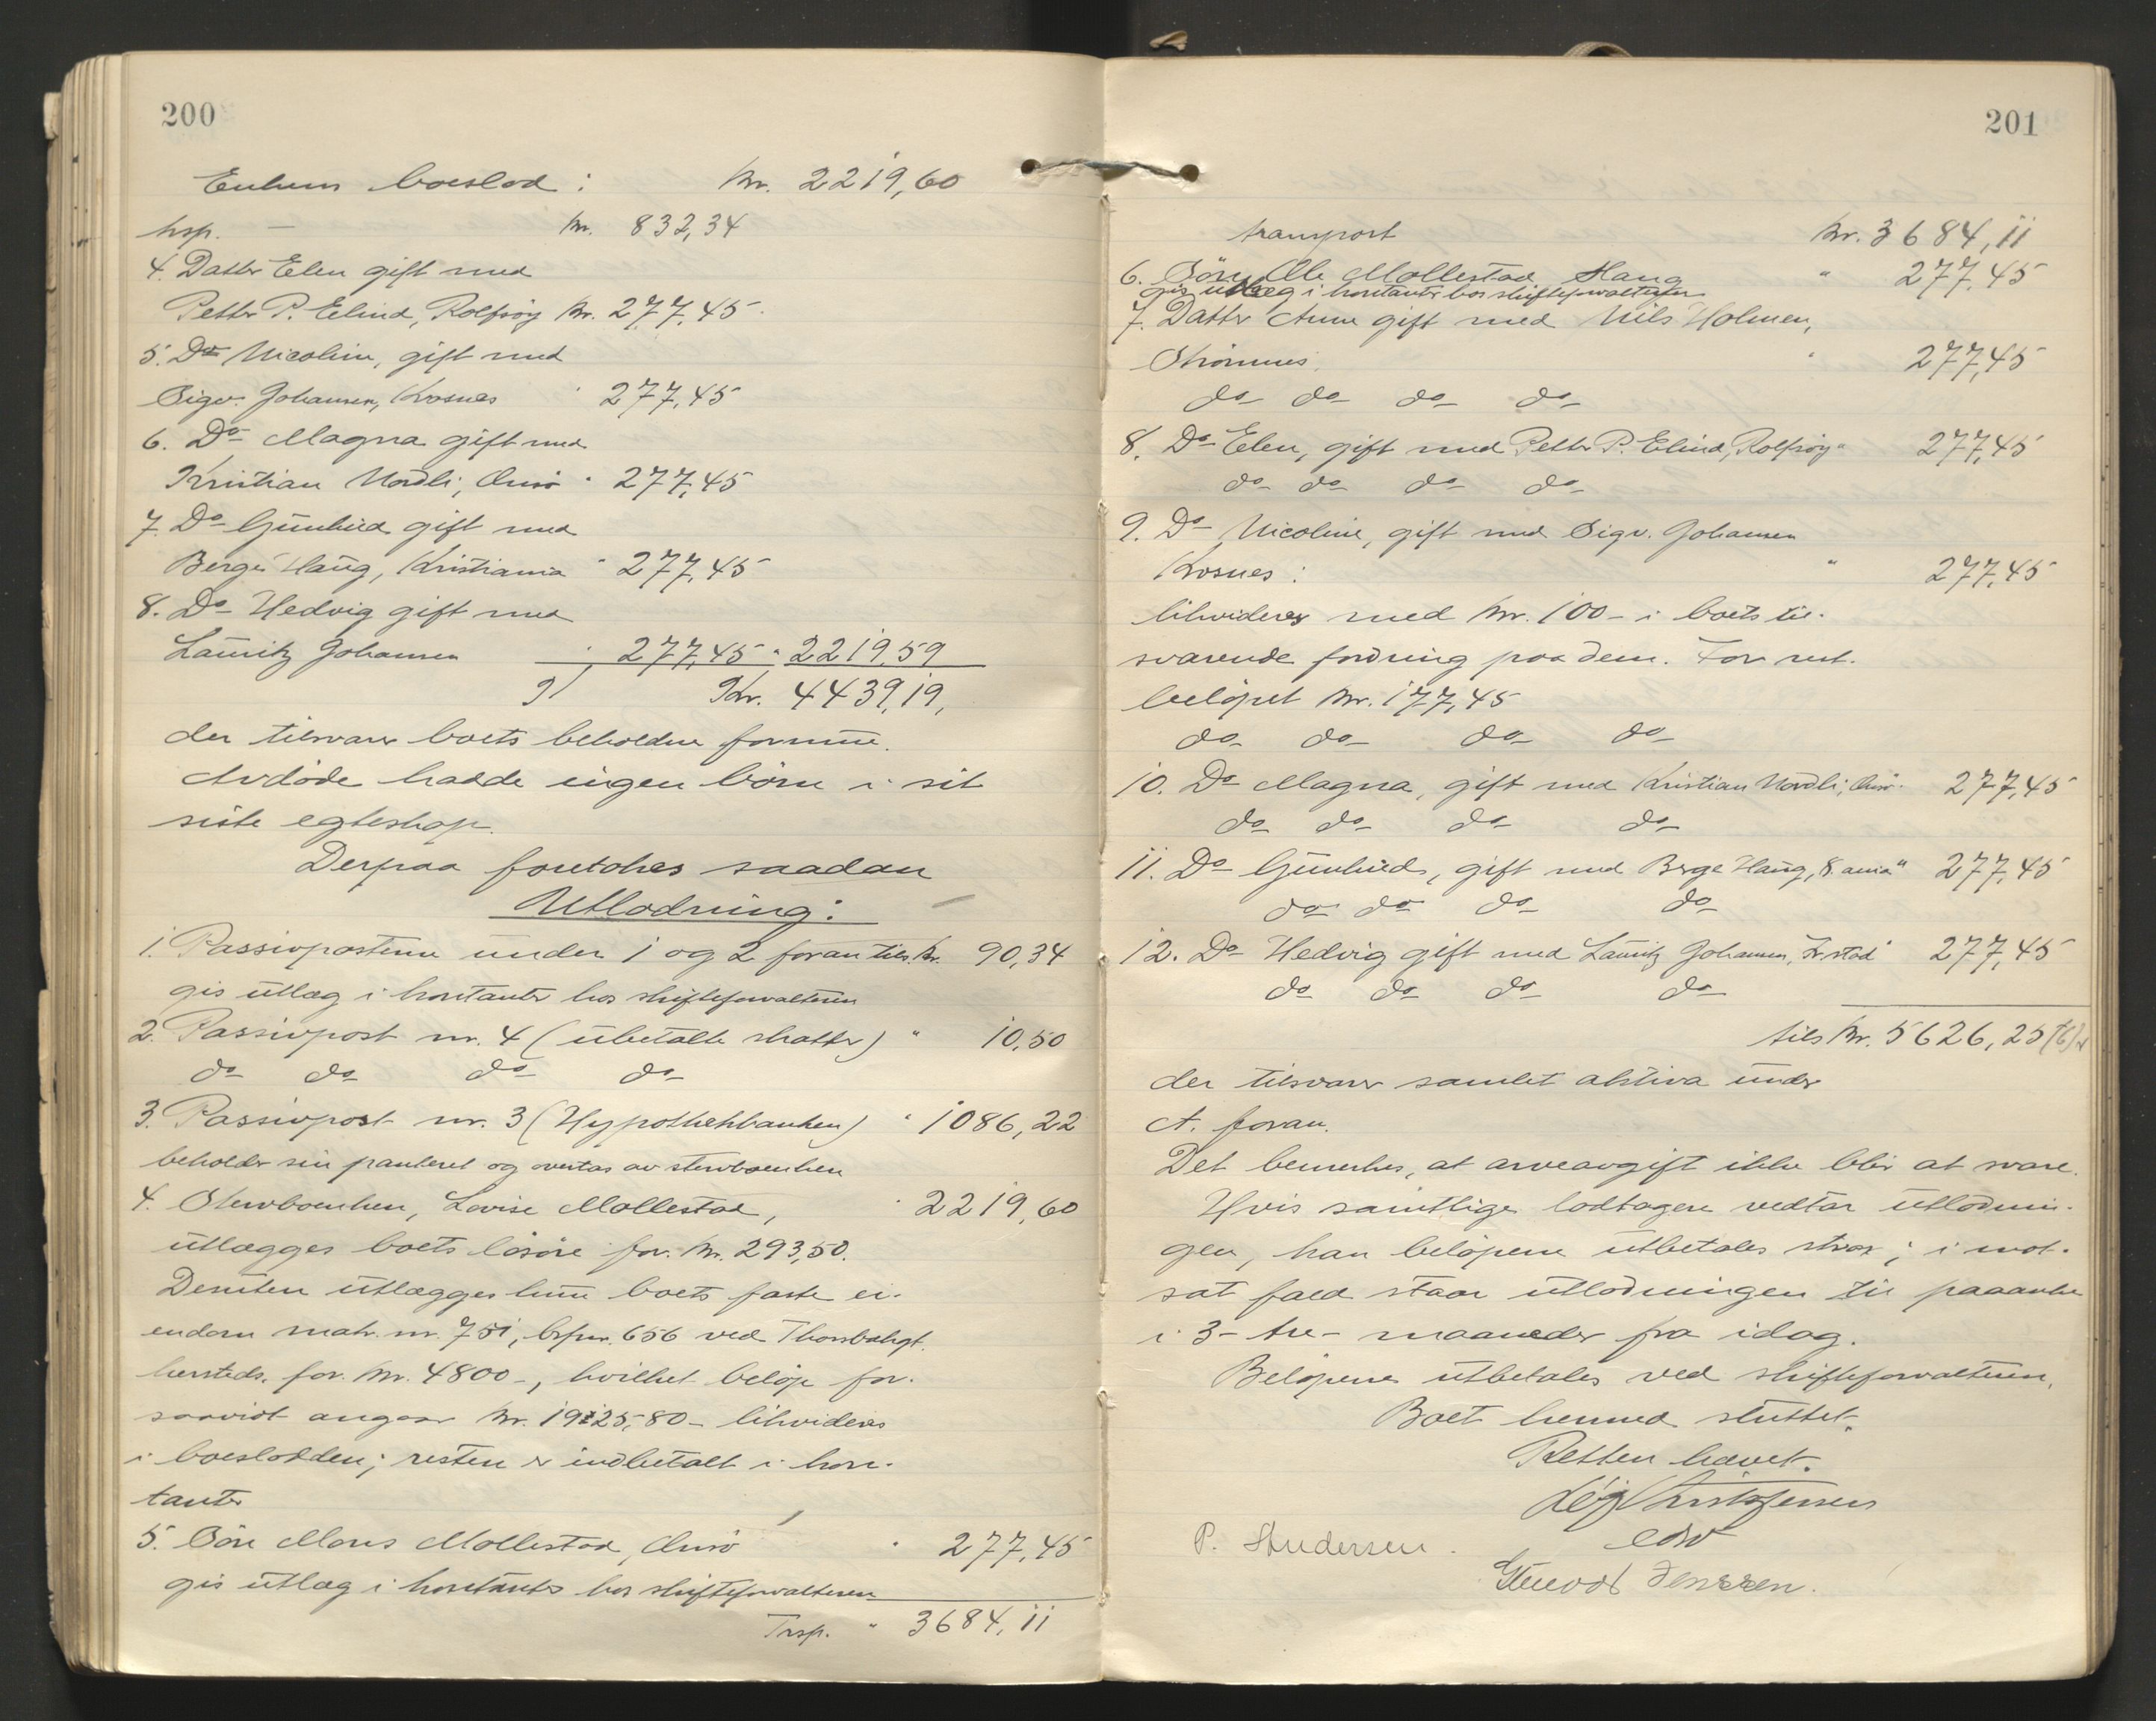 200
Enkens boeslod : kr. 2219,60
trsp. – kr. 832,34
4. Datter Elen gift med
Petter P. Elind, Rolfsøy kr. 277,45
5. Do Nicoline, gift med
Sigv. Johansen, Krosnes " 277,45
6. Do Magna gift med
Kristian Nordli, Onsö " 277,45
7. Do Gunhild gift med
Berge Haug, Kristiania " 277,45
8. Do Hedvig gift med
Lauritz Johansen " 277,45 " 2219,59
Kr. 4439,19,
der tilsvarer boets beholdne formue.
Avdöde hadde ingen börn i sit
siste egteskap.
Derpaa foretokes saadan
Utlodning:
1. Passivposterne under 1 og 2 foran tils. kr. 90,34
gis utlæg i kontanter hos skifteforvalteren
2. Passivpost nr. 4 (ubetalte skatter) " 10,50
do do do do
3. Passivpost nr. 3 (Hypothekbanken) " 1086,22
beholder sin panteret og overtas av stervboenken
4. Stervboenken, Lovise Mollestad, " 2219,60
utlægges boets lösöre for kr. 293,50.
Desuten utlægges hun boets faste ei-
endom matr. nr. 751, brpnr. 656 ved Thorsbakgt.
hersteds. for kr. 4800-, hvilket beløp for-
saavidt angaar kr. 1925,80 – likvideres
i boeslodden; resten er indbetalt i kon-
tanter
5. Sön Mons Mollestad, Onsö " 277,45
gis utlæg i kontanter hos skifteforvalteren
Trsp. " 3684,11
201
transport kr. 3684,11
6. Sön Ole Mollestad Haug " 277,45
gis utlæg i kontanter hos skifteforvalteren
7. Datter Anne gift med Nils Holmen,
Strömnes. " 277,45
do do do do
8. Do Elen, gift med Petter P. Elind, Rolfsöy " 277,45
do do do do
9. Do Nicoline, gift med Sigv. Johansen
Krosnes : " 277,45
likvideres med kr. 100– i boets til-
svarende fordring paa dem. For rest-
belöpet kr. 177,45
do do do do
10. Do Magna, gift med Kristian Nordli, Onsö. 277,45
do do do do
11. Do Gunhild, gift med Berge Haug, Kr.ania " 277,45
do do do do
12. Do Hedvig gift med Lauritz Johansen, Fr.stad " 277,45
do do do do
tils kr. 5626,25 (6)
der tilsvarer samlet aktiva under
A. foran.
Det bemerkes, at arveavgift ikke blir at svare.
Hvis samtlige lodtagere vedtar utlodnin-
gen, kan belöpene utbetales strax; i mot-
sat fald staar utlodningen til paaanke
i 3– tre– maaneder fra idag.
Belöpene utbetales ved skifteforvalteren.
Boet hermed sluttet.
Retten hævet.
Leif Christensen
edsv
P. Andersen.